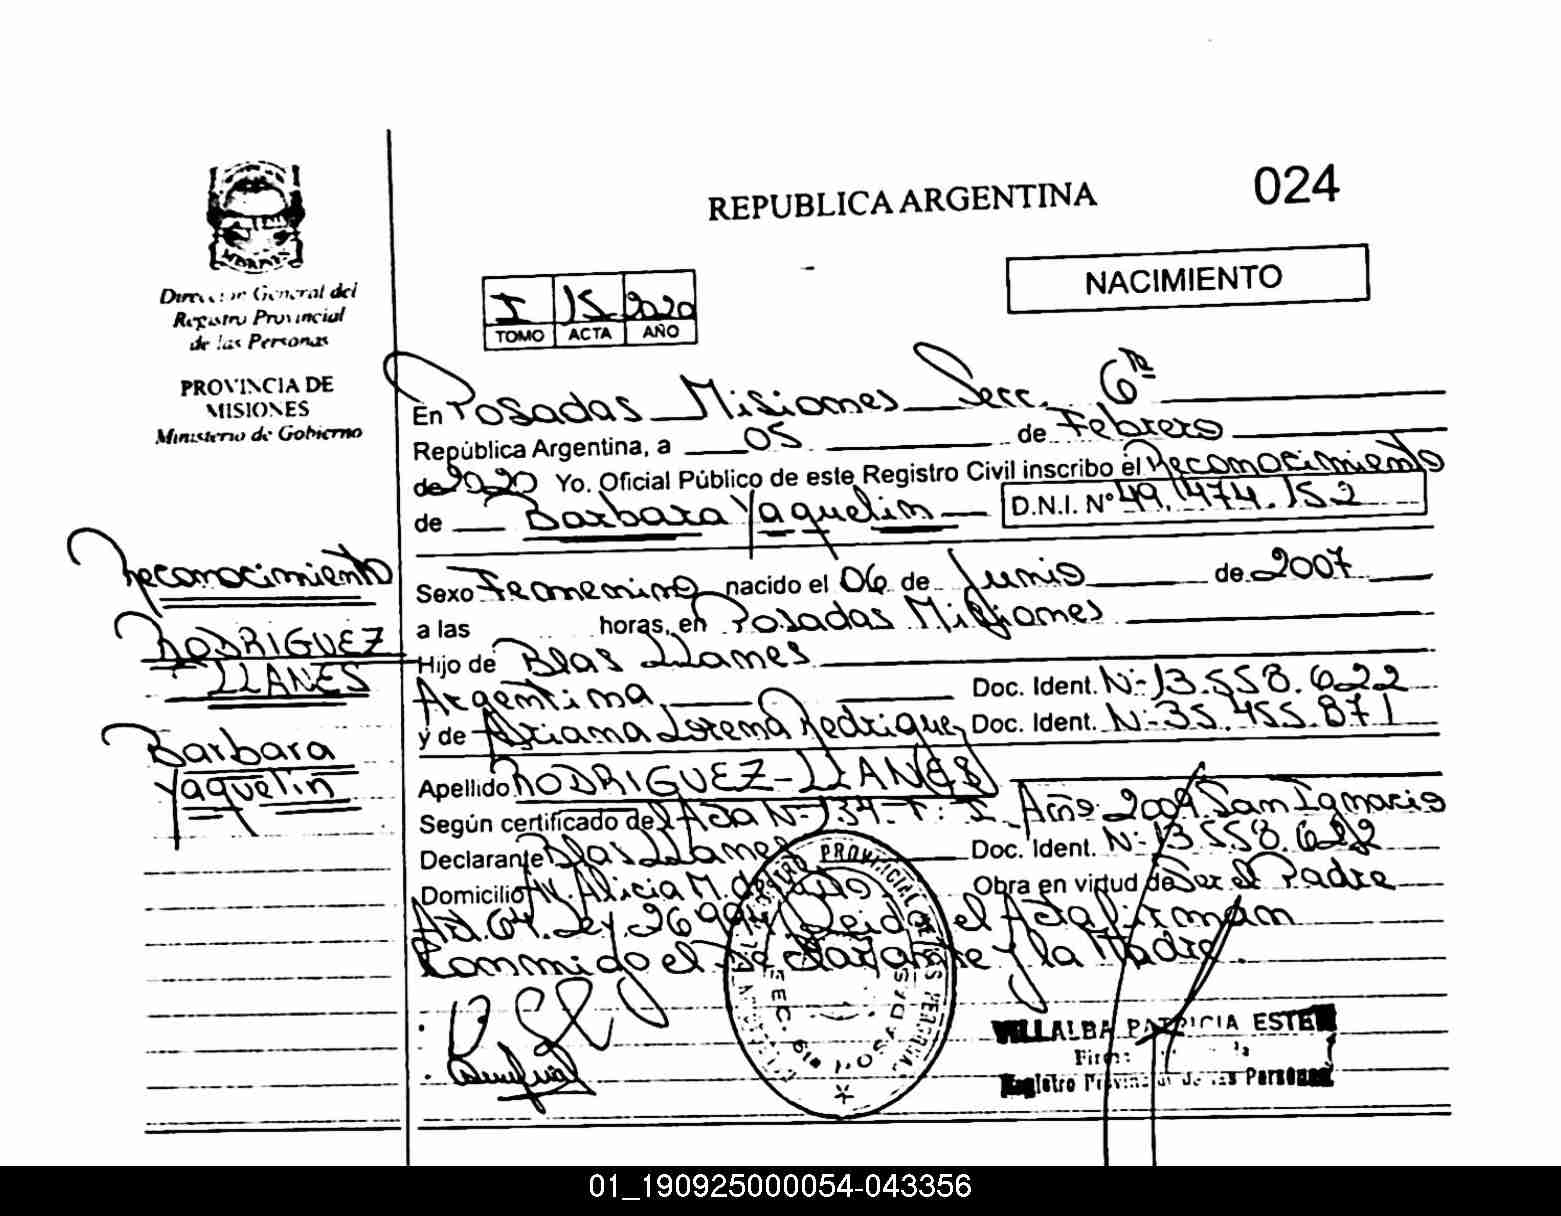 REPUBLICA ARGENTINA
024
NACIMIENTO
Dirección General del
Registro Provincial
de las Personas
PROVINCIA DE
MISIONES
Ministerio de Gobierno
I 15 2020
TOMO ACTA AÑO
En Posadas Misiones Secc. 6ta
República Argentina, a 05 de Febrero
de 2020 Yo. Oficial Público de este Registro Civil inscribo el Reconocimiento
de Barbara Yaquelin D.N.I. N° 49.474.152
Reconocimiento
RODRIGUEZ
LLANES
Barbara
Yaquelin
Sexo Femenino nacido el 06 de Junio de 2007
a las horas, en Posadas Misiones
Hijo de Blas Llanes
Argentina Doc. Ident. N- 13.558.622
y de Adriana Lorena Rodriguez Doc. Ident. N- 35.455.871
Apellido RODRIGUEZ-LLANES
Según certificado de Acta N- 134-T: I Año 2009 San Ignacio
Declarante Blas Llanes Doc. Ident. N- 13.558.622
Domicilio Av. Alicia M. de Obra en virtud de Ser el Padre
Art. 64. Ley. 26.994 Leida el Acta firman
Conmigo el Declarante y la Madre.
REGISTRO PROVINCIAL DE LAS PERSONAS
SEC. 6ta POSADAS
VILLALBA PATRICIA ESTER
Registro Provincial de las Personas
01_190925000054-043356